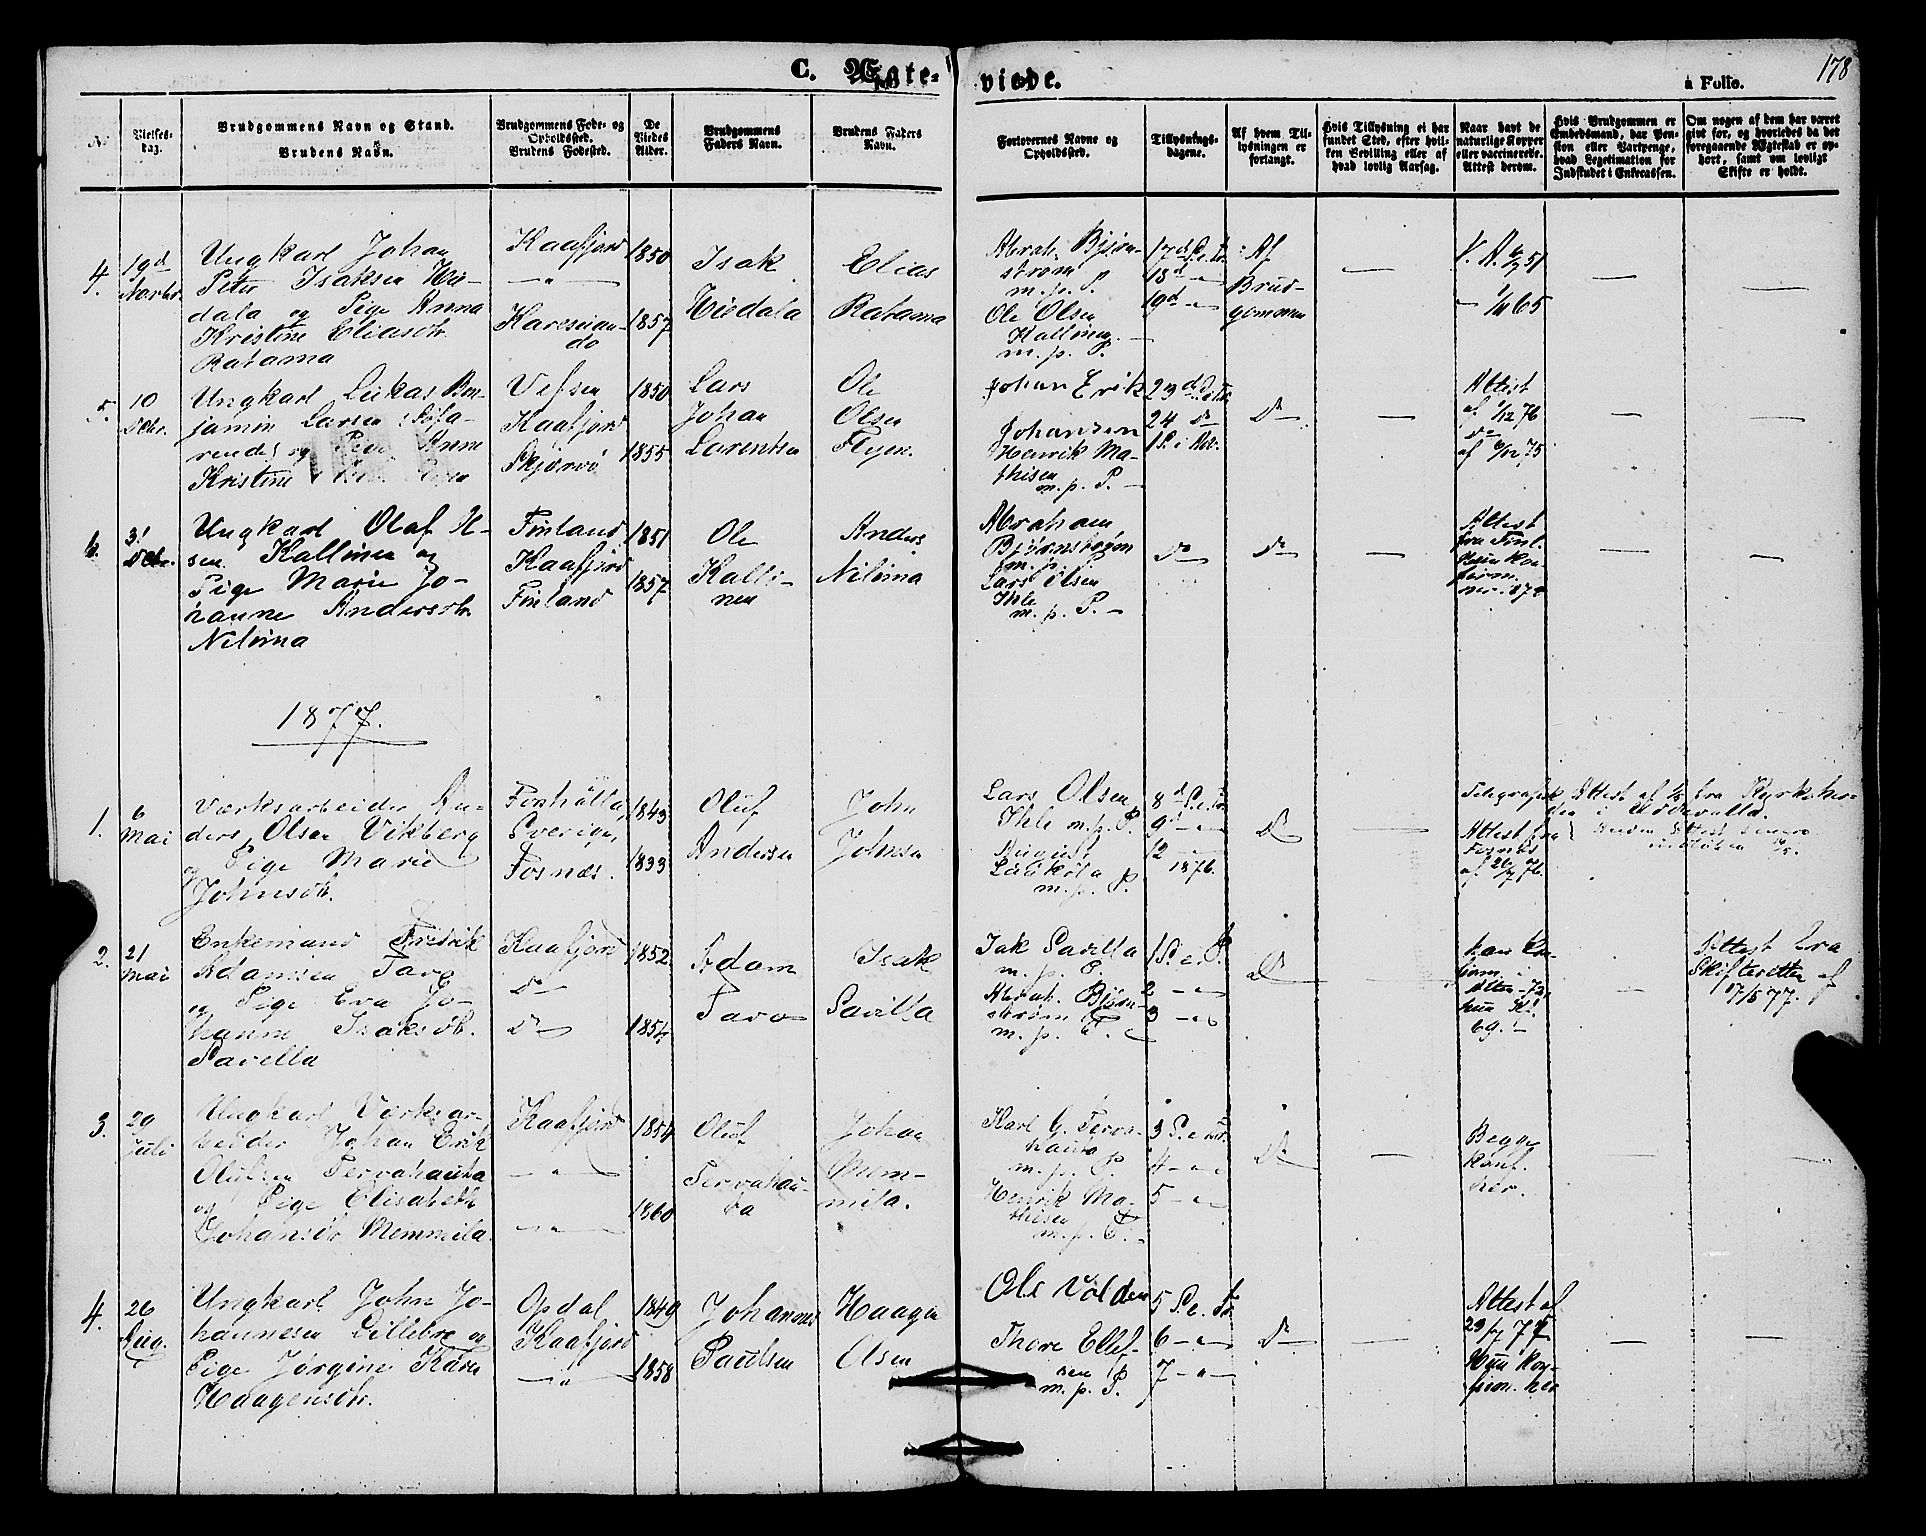 C. Ægte-
viede.
a Folio.
178
No
Vielses-
dag.
Brudgommens Navn og Stand.
Brudens Navn.
Brudgommens Føde- og
Opholdssted.
Brudens Fødested.
De
Viedes
Alder.
Brudgommens
Faders Navn.
Brudens Faders
Navn.
Forlovernes Navne og
Opholdssted.
Tillysnings-
dagene.
Af hvem Til-
lysningen er
forlangt.
Hvis Tillysning ei har
fundet Sted, efter hvil-
ken Bevilling eller af
hvad lovlig Aarsag.
Naar havt de
naturlige Kopper
eller vaccinerede.
Attest derom.
Hvis Brudgommen er
Embedsmand, har Pen-
sion eller Vartpenge,
hvad Legitimation for
Indskudet i Enkecassen.
Om nogen af dem har været
gift før, og hvorledes da det
foregaaende Ægteskab er op-
hørt, samt om lovligt
Skifte er holdt.
4.
19d
Ungkarl Johan
Peter Isaksen Hie-
dala og Pige Anna
Kristine Eliasdtr.
Ratama
Kaafjord
— " —
Karesuan-
do
1850
1857
Isak
Hiedala
Elias
Ratama
Abrah. Bjørn-
strøm
m. p. P.
Ole Olsen
Kallinen
m. p. P.
17d S. e. Tr.
18d — " —
19d — " —
Af
Brud-
gommen
—
V. A. 51
— 65
—
—
5.
10
Decbr.
Ungkarl Lukas Ben-
jamin Larsen
og Pige Anne
Kristine
Vefsen
Kaafjord
Skjervø
1850
1855
Lars
Johan
Larentsen
Ole
Olsen
Flyen.
Johan Erik
Johansen
Henrik Ma-
thisen
m. p. P. —
23d S. e. Tr.
24 do
1 S. i Adv.
Do
—
Attest
af 1/12 76
do
af 75
—
—
6.
31
Decbr.
Ungkarl Olaf
sen Kallinen og
Pige Marie Jo-
hanne Andersdtr.
Nilima
Finland
Kaafjord
Finland
1851
1857
Ole
Kalli-
nen
Anders
Nilima
Abraham
Bjørnstrøm
m. p. P.
Lars Olsen
Ihle
m. p. P. —
Do
Do
—
Attest
fra Finl.
Hun kon-
firm.
—
—
1877.
1.
6
Mai
Værksarbeider An-
ders Olsen Vikberg
og Pige Marie
Johnsdtr.
Forshälla,
Sverige,
Fosnæs.
1843
1833
Oluf
Andersen
John
Johnsen
Lars Olsen
Ihle m. p. P.
August
m. p. P.
8d S. e. Tr.
9d — " —
12 —
1876.
Do
—
Telegrafisk Attest af fra Kyrkoher-
den i Uddevalla.
Attest fra
Fosnæs
af 20/7 76.
2.
21
Mai
Enkemand Fredrik
Adamsen Tavo
og Pige Eva Jo-
hanne Isaksdtr.
Savella
Kaafjord
Do
Do
1852
1854
Adam
Tavo
Isak
Savilla
Isak Savilla
m. p. P.
Abrah. Bjørn-
strøm
m. p. P.
1 S. e. P.
2 — " —
3 — " —
Do
han Kon-
firm. i
Alten 72,
hun Ki.
69. —
—
Attest fra
Skifteretten af
17/5 77.
3.
29
Juli
Ungkarl Værksar-
beider Johan Erik
Olufsen Tervahauta
og Pige Elisabeth
Johansdtr. Memmila.
Kaafjord
— " —
— " —
1854
1860
Oluf
Tervahau-
ta
Johan
Mem-
mila.
Karl G. Terva-
hauta
m. p. P
Henrik Ma-
thisen
m. p. P. —
3 S. e. Tr.
4 — " —
5 — " —
Do
—
Begge
Konf.
her.
—
—
4.
26
Aug.
Ungkarl John Jo-
hannesen Lillebro og
Pige Jørgine Karen
Haagensdtr.
Opdal
Kaafjord
— " —
1849
1858
Johannes
Paulsen
Haagen
Olsen
Ole Volden
Thore Ellef-
sen
m. p. P.
5 S. e. Tr.
6 — " —
7 — " —
Do
—
Attest af
29/7 77
Hun kon-
firm. her
—
—